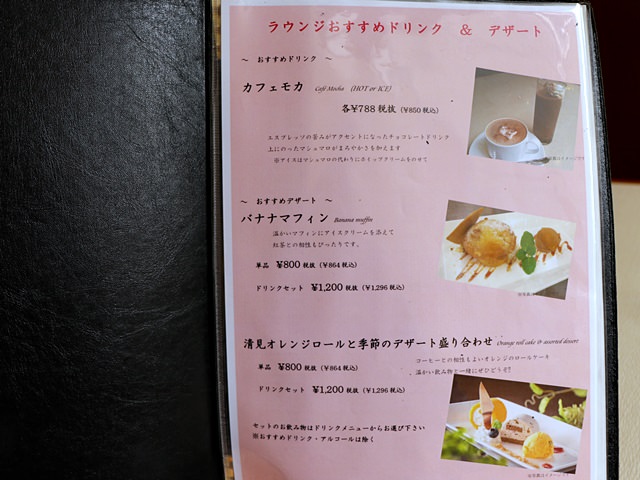 ラウンジおすすめドリンク ＆ デザート
～ おすすめドリンク ～
カフェモカ Café Mocha (HOT or ICE)
各¥788 税抜 (¥850 税込)
エスプレッソの苦みがアクセントになったチョコレートドリンク
上にのったマシュマロがまろやかさを加えます
※アイスはマシュマロの代わりにホイップクリームをのせて
～ おすすめデザート ～
バナナマフィン Banana muffin
温かいマフィンにアイスクリームを添えて
紅茶との相性もぴったりです。
単品 ¥800 税抜 (¥864 税込)
ドリンクセット ¥1,200 税抜 (¥1,296 税込)
清見オレンジロールと季節のデザート盛り合わせ Orange roll cake & assorted dessert
コーヒーとの相性もよいオレンジのロールケーキ
温かい飲み物と一緒にぜひどうぞ
単品 ¥800 税抜 (¥864 税込)
ドリンクセット ¥1,200 税抜 (¥1,296 税込)
セットのお飲み物はドリンクメニューからお選び下さい
※おすすめドリンク・アルコールは除く